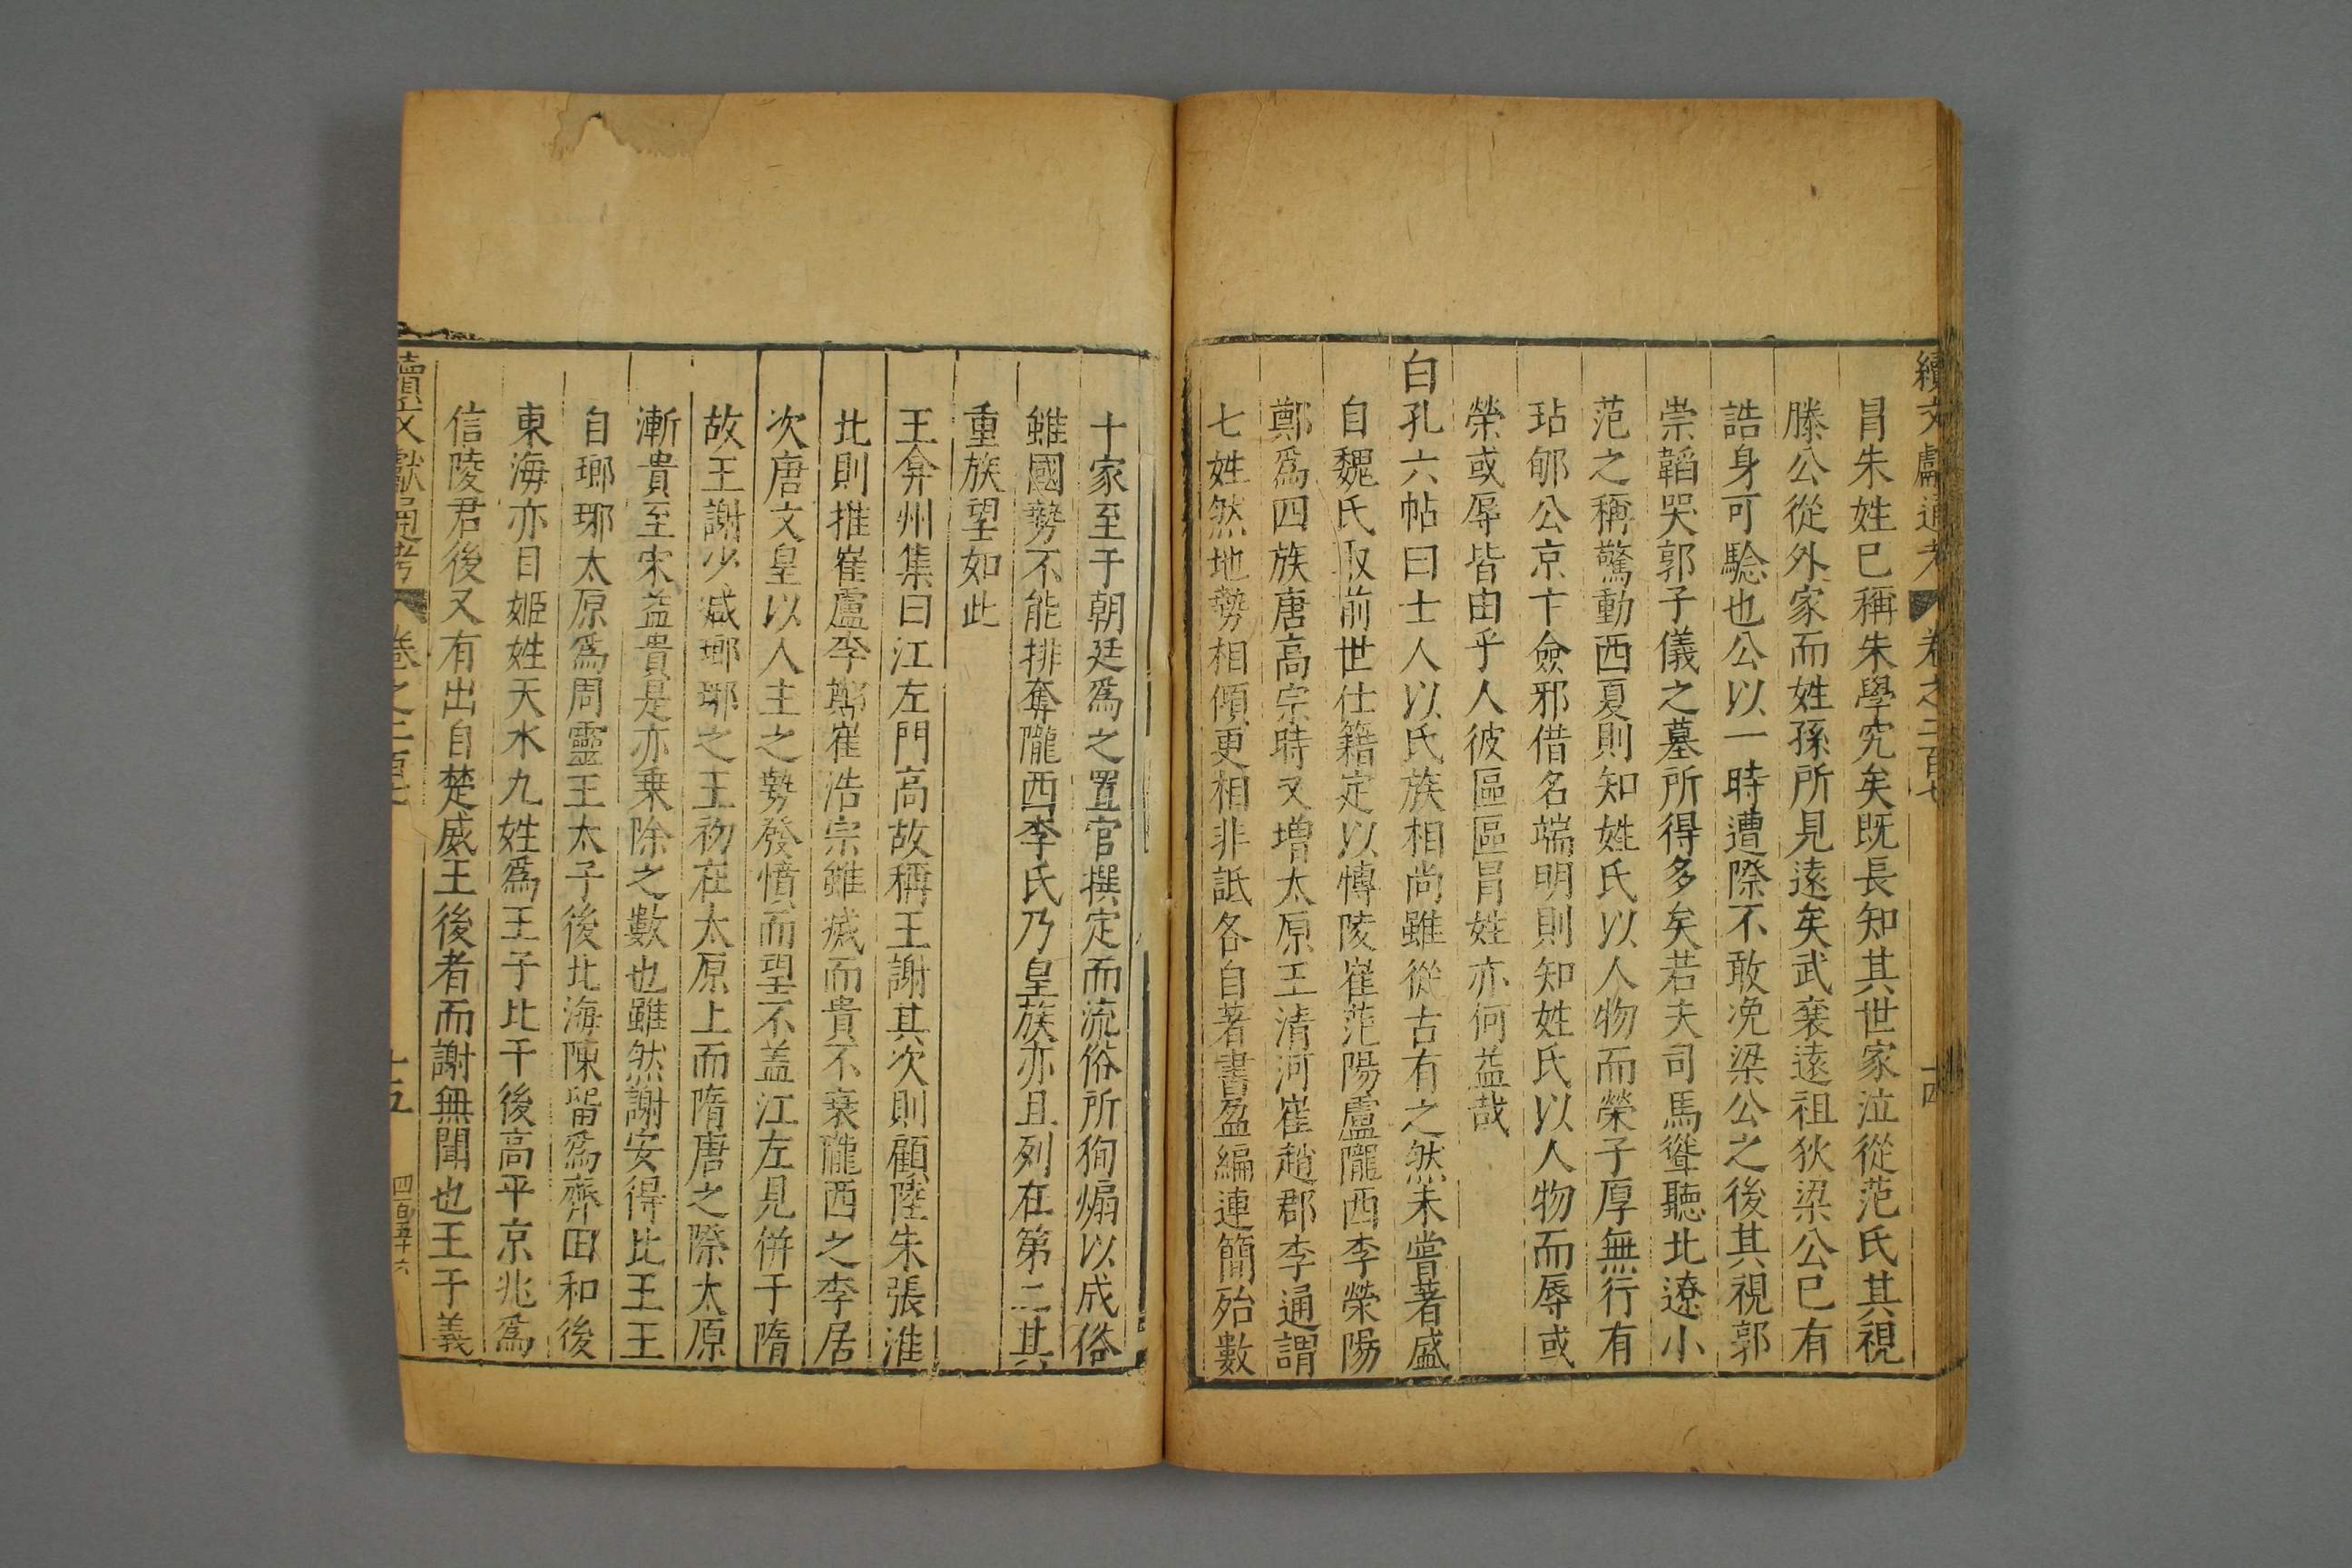 續文獻通考 卷之二百七 十四
冐朱姓巳稱朱學究矣既長知其世家泣從范氏其視
滕公從外家而姓孫所見遠矣武襄遠祖狄梁公巳有
誥身可驗也公以一時遭際不敢凂梁公之後其視郭
崇韜哭郭子儀之墓所得多矣若夫司馬聳聽北遼小
范之稱驚動西夏則知姓氏以人物而榮子厚無行有
玷郇公京卞僉邪借名端明則知姓氏以人物而辱或
榮或辱皆由乎人彼區區冐姓亦何益哉
白孔六帖曰士人以氏族相尚雖從古有之然未嘗著盛
自魏氏取前世仕籍定以慱陵崔范陽盧隴西李榮陽
鄭爲四族唐高宗時又增太原王清河崔趙郡李通謂
七姓然地勢相傾更相非詆各自著書盈編連簡殆數
十家至于朝廷爲之置官撰定而流俗所狥煽以成俗
雖國勢不能排奪隴西李氏乃皇族亦且列在第三其
重族望如此
王弇州集曰江左門高故稱王謝其次則顧陸朱張淮
北則推崔盧李鄭崔浩宗雖㓕而貴不衰隴西之李居
次唐文皇以人主之勢發憤而望不盖江左見併于隋
故王謝少减瑯琊之王初在太原上而隋唐之際太原
漸貴至宋益貴是亦乗除之數也雖然謝安得比王王
自瑯琊太原爲周靈王太子後北海陳留爲齊田和後
東海亦目姬姓天水九姓爲王子比干後高平京兆爲
信陵君後又有出自楚威王後者而謝無聞也王于義
續文獻通考 卷之二百七 十五 四百五十六